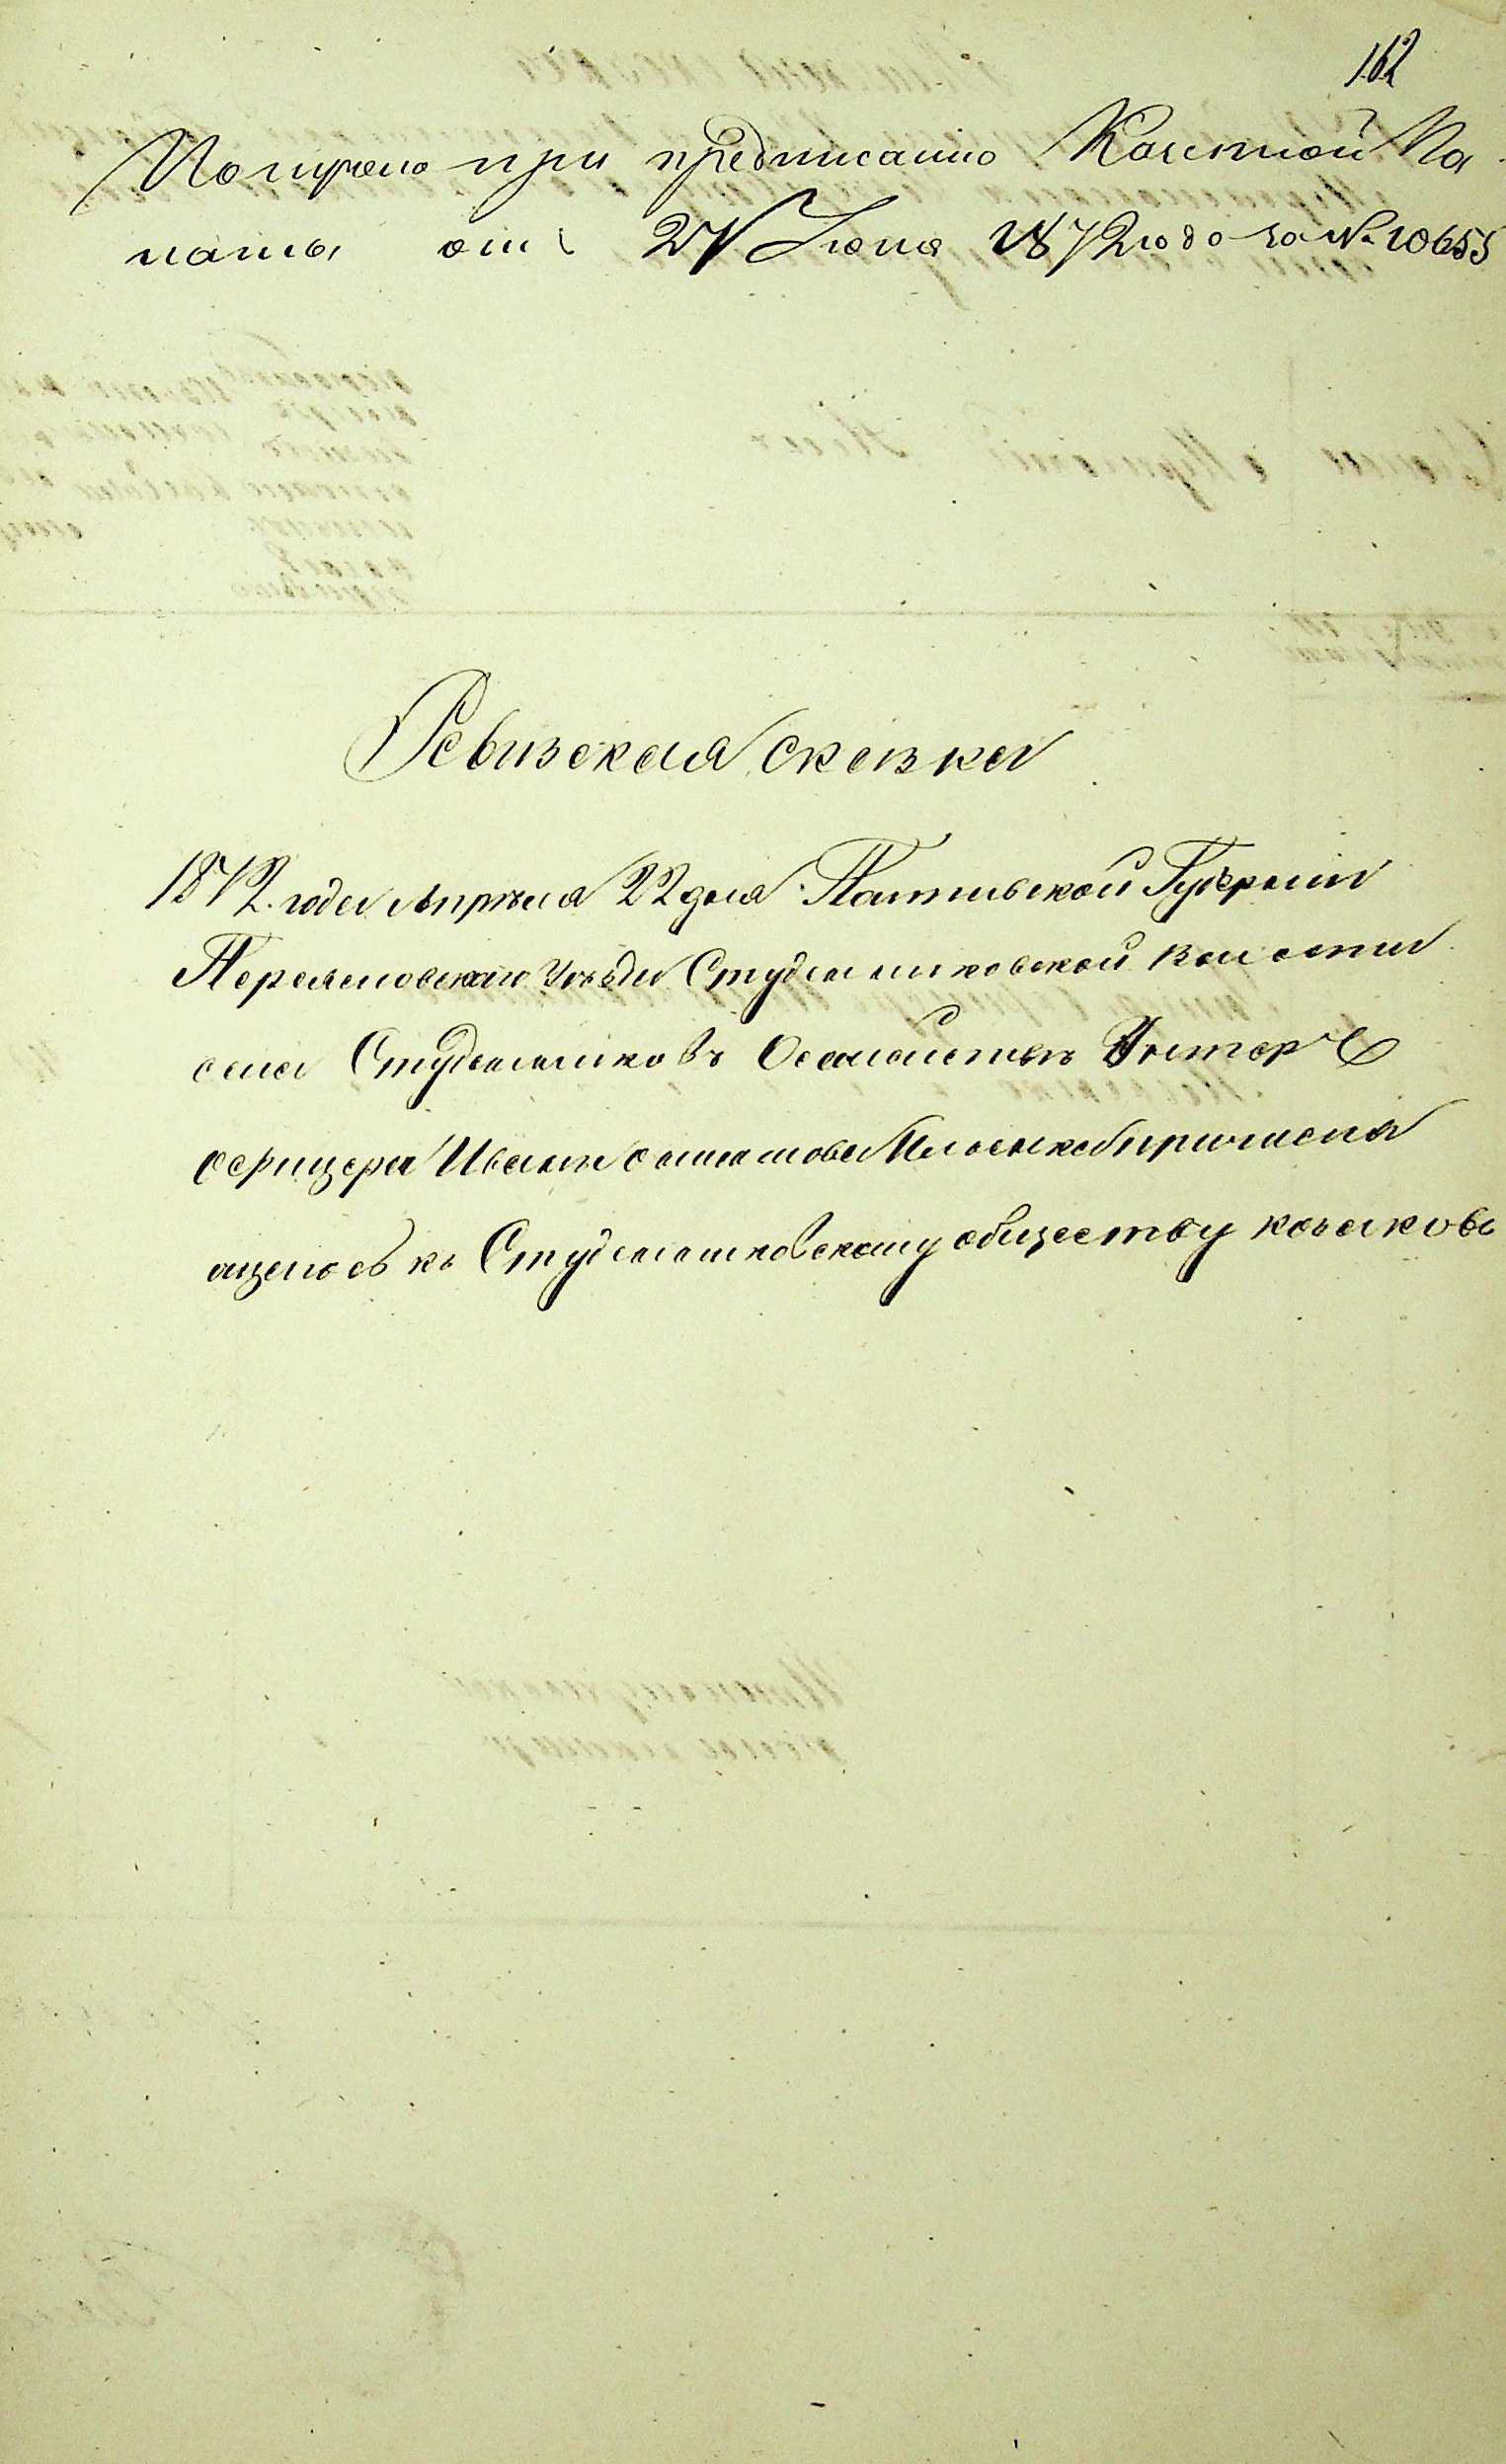 162
Получено при предписанію Казенной Па
латы отъ 21 Іюня 1872 года за № 10655
Ревизская сказка
1872. года Апреля 22 дня Полтавской Губерніи
Переяславскаго Уезда Студениковской волости
села Студениковъ Унтеръ
офицера Ивана причисля
ющегося къ Студениковскому обществу козаковъ